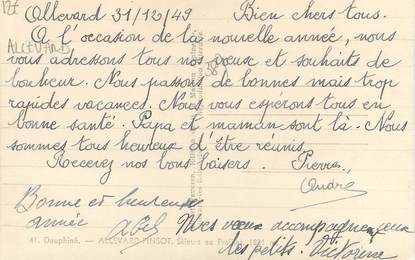 Allevard 31/12/49 Bien chers tous.
A l'occasion de la nouvelle année, nous
vous adressons tous nos vœux et souhaits de
bonheur. Nous passons de bonnes mais trop
rapides vacances. Nous vous espérons tous en
bonne santé. Papa et maman sont là. Nous
sommes tous heureux d'être réunis.
Recevez nos bons baisers. Pierre,
André
Bonne et heureuse
année Abel
Mes vœux accompagnent ceux
des petits. Victorine
ALLEVARD
41. Dauphiné. — ALLEVARD-PINSOT.